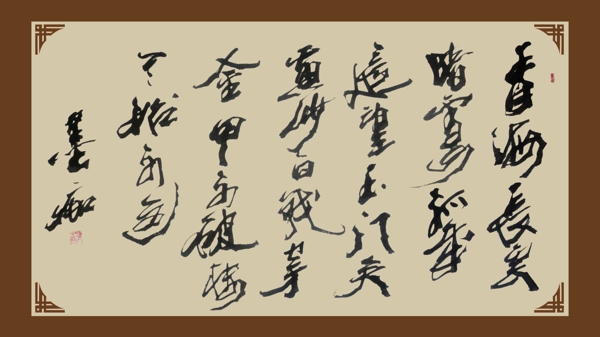 青海長雲
暗雪山孤城
遙望玉门关
黄沙百戰穿
金甲不破楼
兰終不還
墨痴